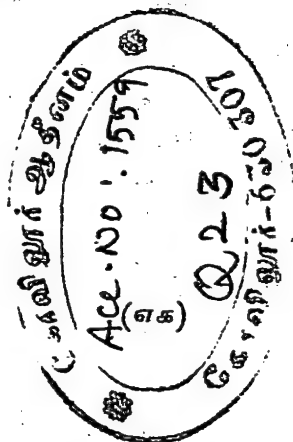 கோவிலூர் ஆதீனம்
Acc.No: 1559
(எக)
Q23
கோவிலூர்-630307